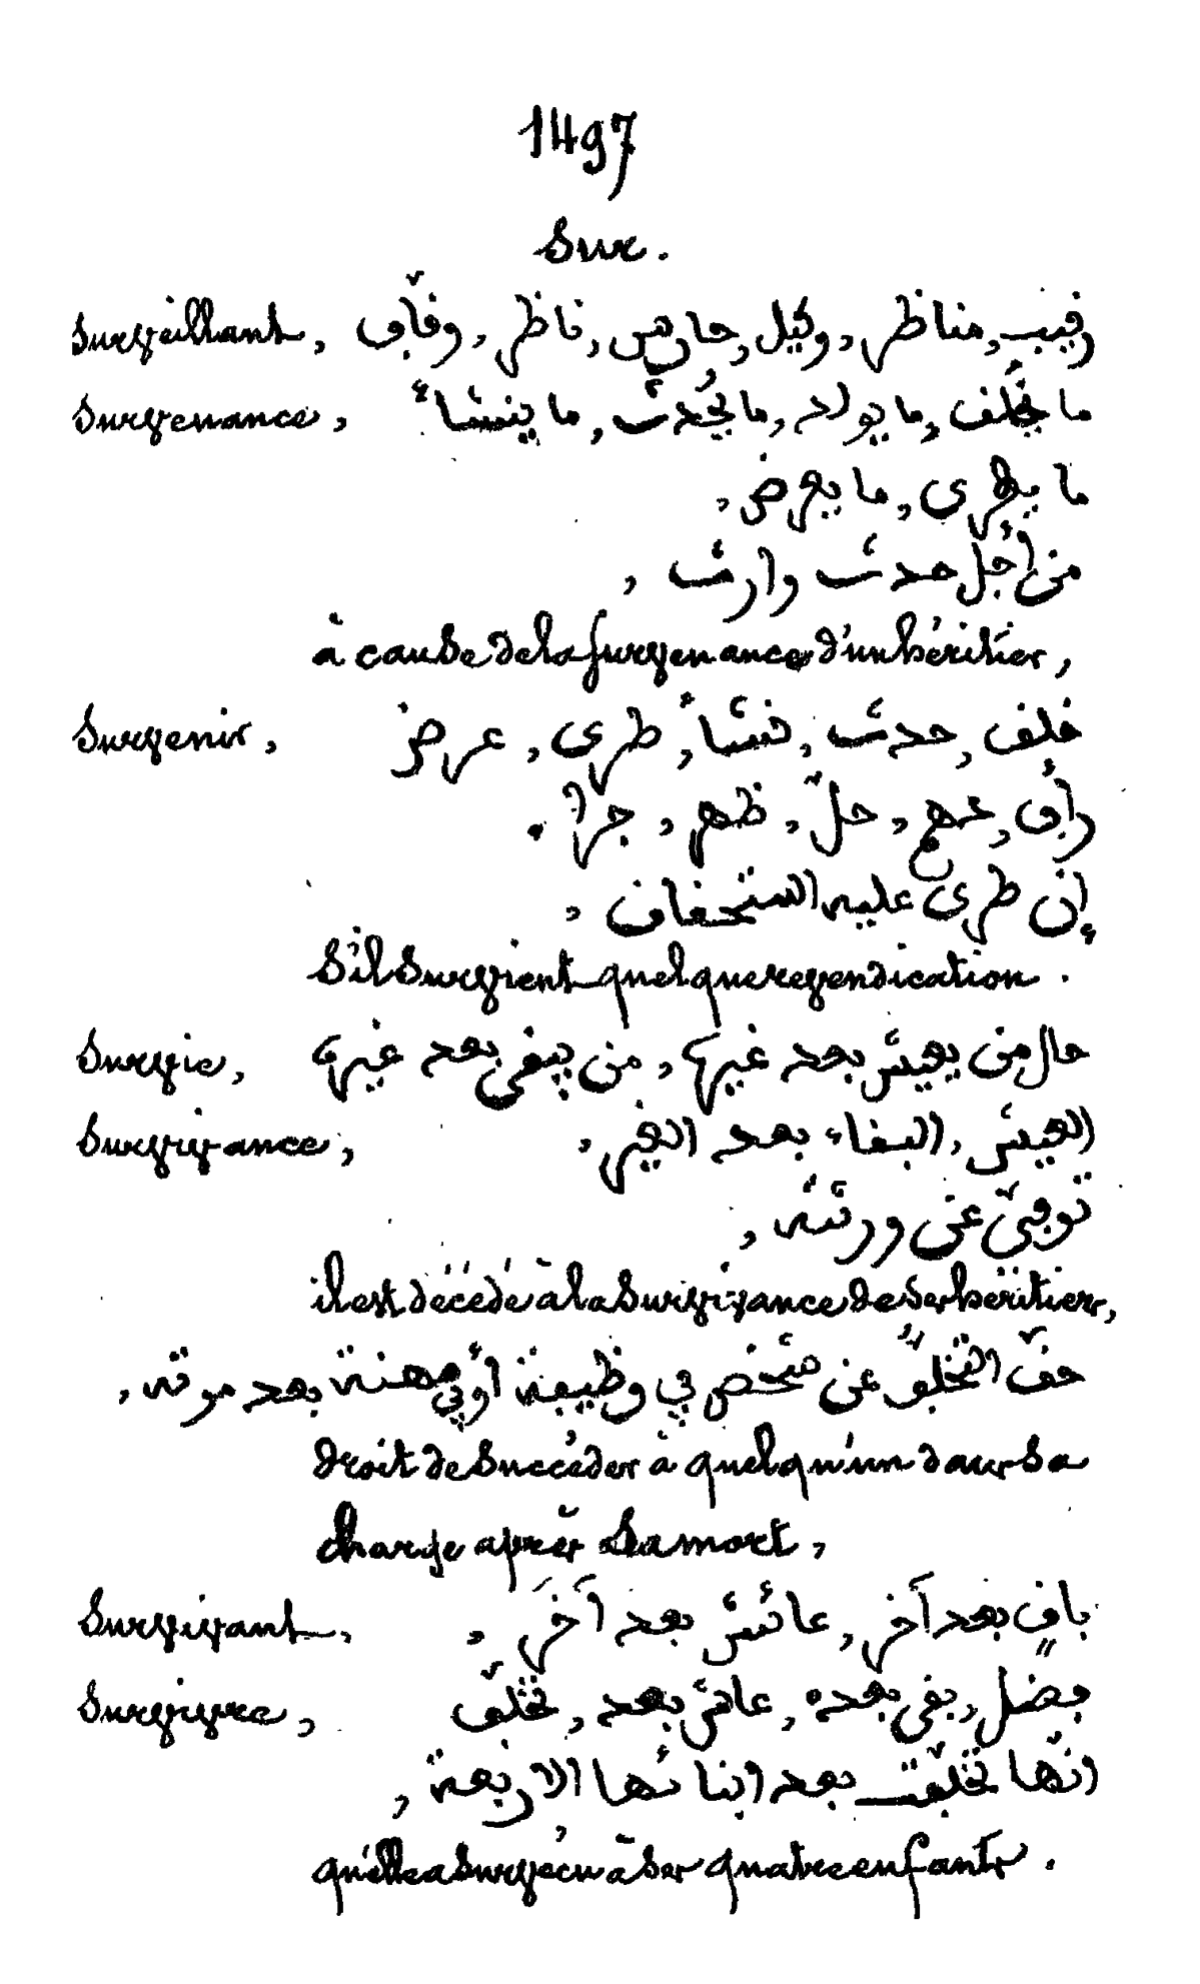 1497
Sur.
Surveillant, رقيب, مناظر, وكيل, حارس, ناظر, وقّاف
Survenance, ما يخلف, ما يولد, ما يحدث, ما ينشأ
ما يطرى, ما يعرض,
من أجل حدث وارث,
à cause de la survenance d'un héritier,
Survenir, خلف, حدث, نشأ, طرى, عرض
حلّ, ظهر, جرا.
إن طرى عليه استحقاق,
S'il survient quelque revendication.
Survie, حال من يعيش بعد غيره, من يبقى بعد غيره
Survivance, العيش, البقاء بعد الغير,
توفّي عن ورثته,
il est décédé à la survivance de ses héritiers,
حقّ التخلّف عن شخص في وظيفة أو في مهنة بعد موته,
droit de succéder à quelqu'un dans sa
charge après sa mort,
Survivant, باقٍ بعد آخر, عائش بعد آخر,
Survivre, فضل, بقى بعده, عاش بعد, تخلّف
انّها تخلّفت بعد ابنائها الاربعة,
qu'elle a survécu à ses quatre enfants.